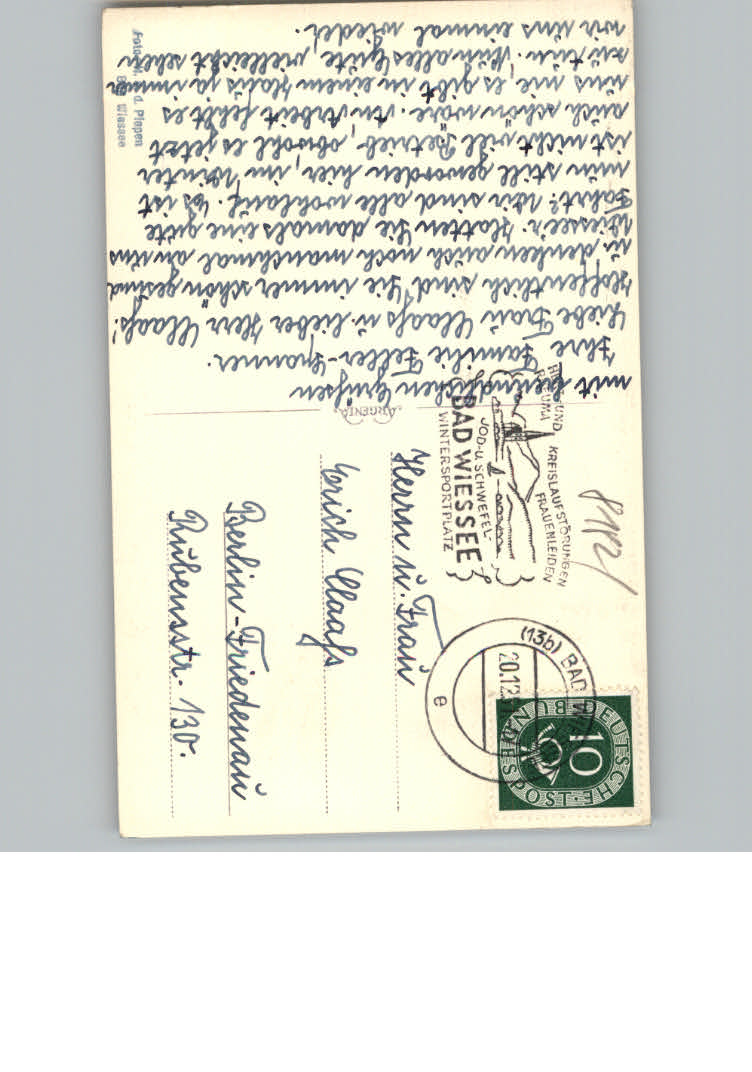 Liebe Frau Claaßs u. lieber Herr Claaßs!
Hoffentlich sind Sie immer schön gesund
u. denken auch noch manchmal an uns
Wiesseer. Hatten Sie damals eine gute
Fahrt? Wir sind alle wohlauf. Es ist
nun still geworden hier, im Winter
ist nicht "viel" Betrieb, obwohl es jetzt
auch schön wäre. An Arbeit fehlt es
uns nie, es gibt in einem Haus ja immer
zu tun. Nun alles Gute, vielleicht sehen
wir uns einmal wieder,
mit herzlichen Grüßen
Ihre Familie Feller-Spanner.
Foto-H. v. d. Piepen
Bad Wiessee
ARGENTA
HERZ- UND KREISLAUFSTÖRUNGEN
RHEUMA FRAUENLEIDEN
JOD- U. SCHWEFEL-
BAD WIESSEE
WINTERSPORTPLATZ
(13b) BAD
20.12.
e
DEUTSCHE BUNDESPOST
10
Herrn u. Frau
Erich Claaßs
Berlin-Friedenau
Rubensstr. 130.